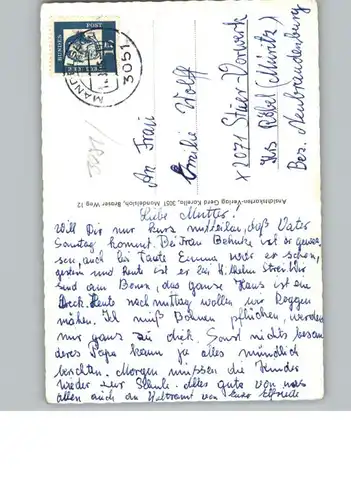 DEUTSCHE
BUNDES
POST
3051
An Frau
Emilie Wolff
X2071 Stuer-Vorwerk
Krs Röbel (Müritz)
Bez. Neubrandenburg
Ansichtskarten-Verlag Gerd Koralle, 3051 Mandelsloh, Broser Weg 12
Liebe Mutter!
Will Dir nur kurz mitteilen, daß Vater
Sonntag kommt. Bei Frau Behnke ist er gewe-
sen, auch bei Tante Emma war er schon,
gestern und heute ist er bei Wilhelm Wir
sind am Bauen, das ganze Haus ist ein
Dreck. Heute nachmittag wollen wir Roggen
mähen. Ich muß Bohnen pflücken, werden
nur ganz zu dick. Sonst nichts beson
deres Papa kann ja alles mündlich
berichten. Morgen müssen die Kinder
wieder zur Schule. Alles gute von uns
allen auch an von Eure Elfriede